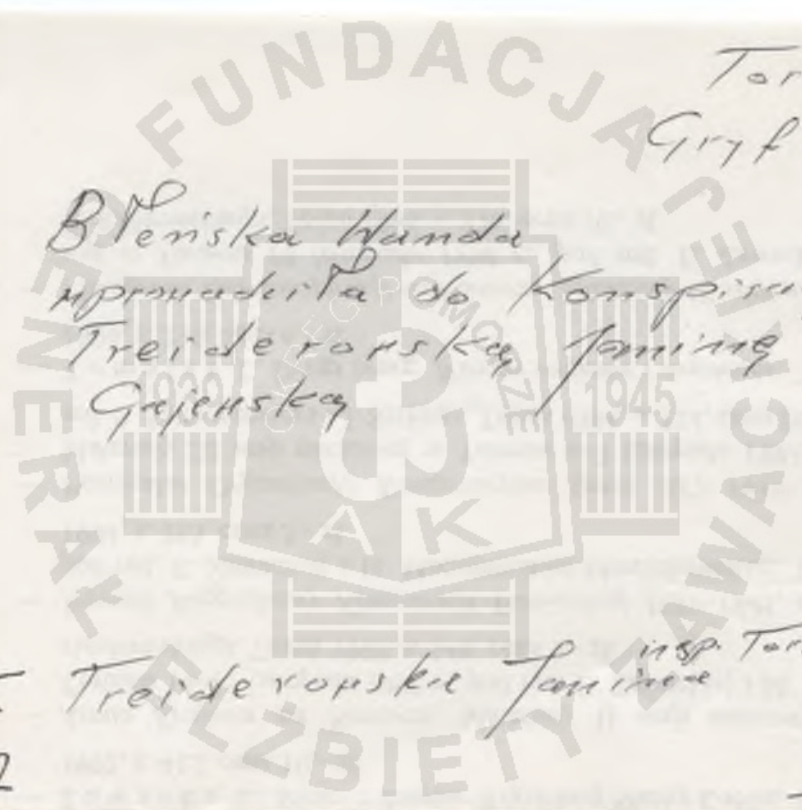 Tor
Gryf
Błeńska Wanda
wprowadziła do Konspira
Treiderowską Janinę
Gajewską
insp. Tor
Treiderowska Janina
FUNDACJA GENERAŁ ELŻBIETY ZAWACKIEJ
OKRĘG POMORZE
1939 1945
AK